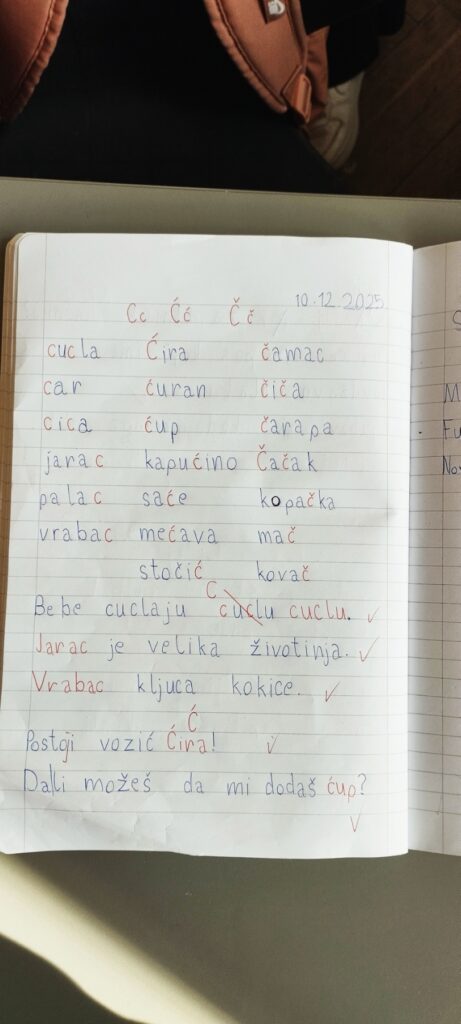 10.12.2025.
Cc Ćć Čč
cucla Ćira čamac
car ćuran čiča
cica ćup čarapa
jarac kapućino Čačak
palac saće kopačka
vrabac mećava mač
stočić kovač
C
Bebe cuclaju cuclu cuclu.
Jarac je velika životinja.
Vrabac kljuca kokice.
Ć
Postoji vozić Ćira!
Da li možeš da mi dodaš ćup?